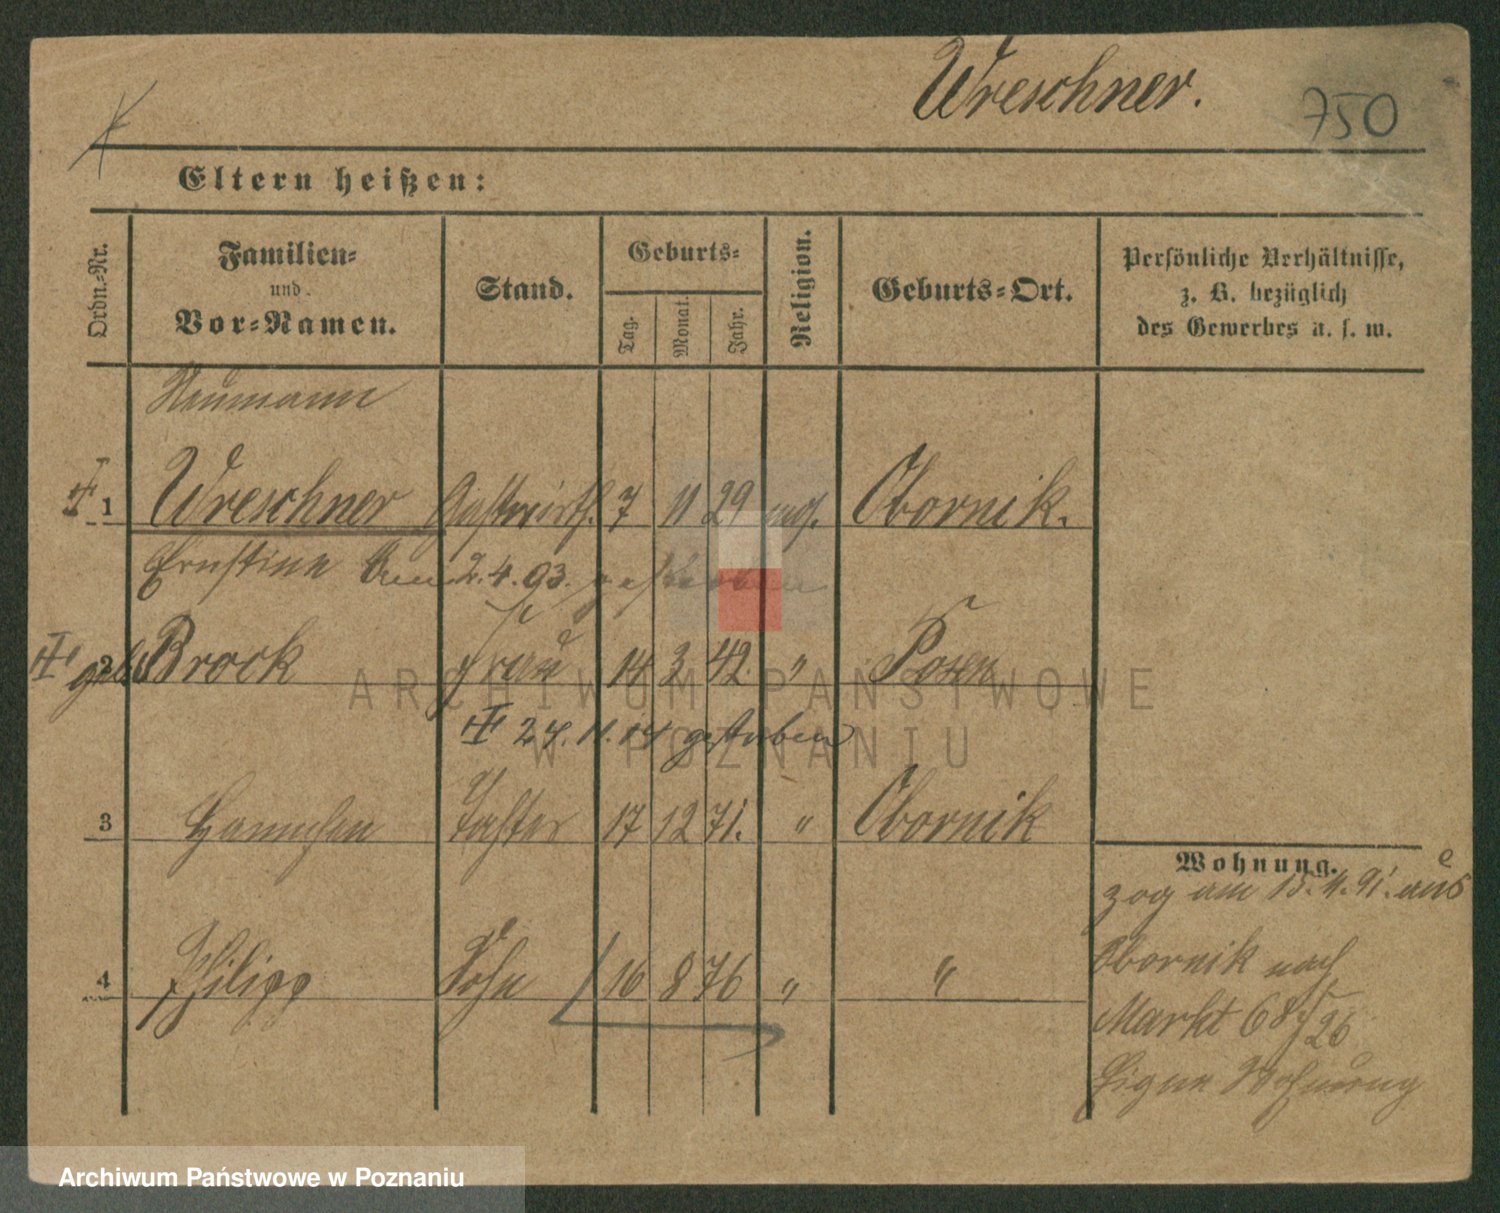 Wreschner.
750
Eltern heißen:
Ordn.-Nr.
Familien-
und
Vor-Namen.
Stand.
Geburts-
Tag.
Monat.
Jahr.
Religion.
Geburts-Ort.
Persönliche Verhältnisse,
z. B. bezüglich
des Gewerbes u. s. w.
Neumann
1 Wreschner Gastwirth. 7 11 29 mos. Obornik.
Ernstine Am 2. 4. 93. gestorben
2 geb. Brock Frau 14 3 42. " Posen
27. 11. 14 gestorben
3 Hannchen Tochter 17 12 71. " Obornik
4 Philipp Sohn 16 8 76 " "
Wohnung.
zog am 15. 4. 91. aus
Obornik nach
Markt 68/26
Eigene Wohnung
ARCHIWUM PAŃSTWOWE
W POZNANIU
Archiwum Państwowe w Poznaniu